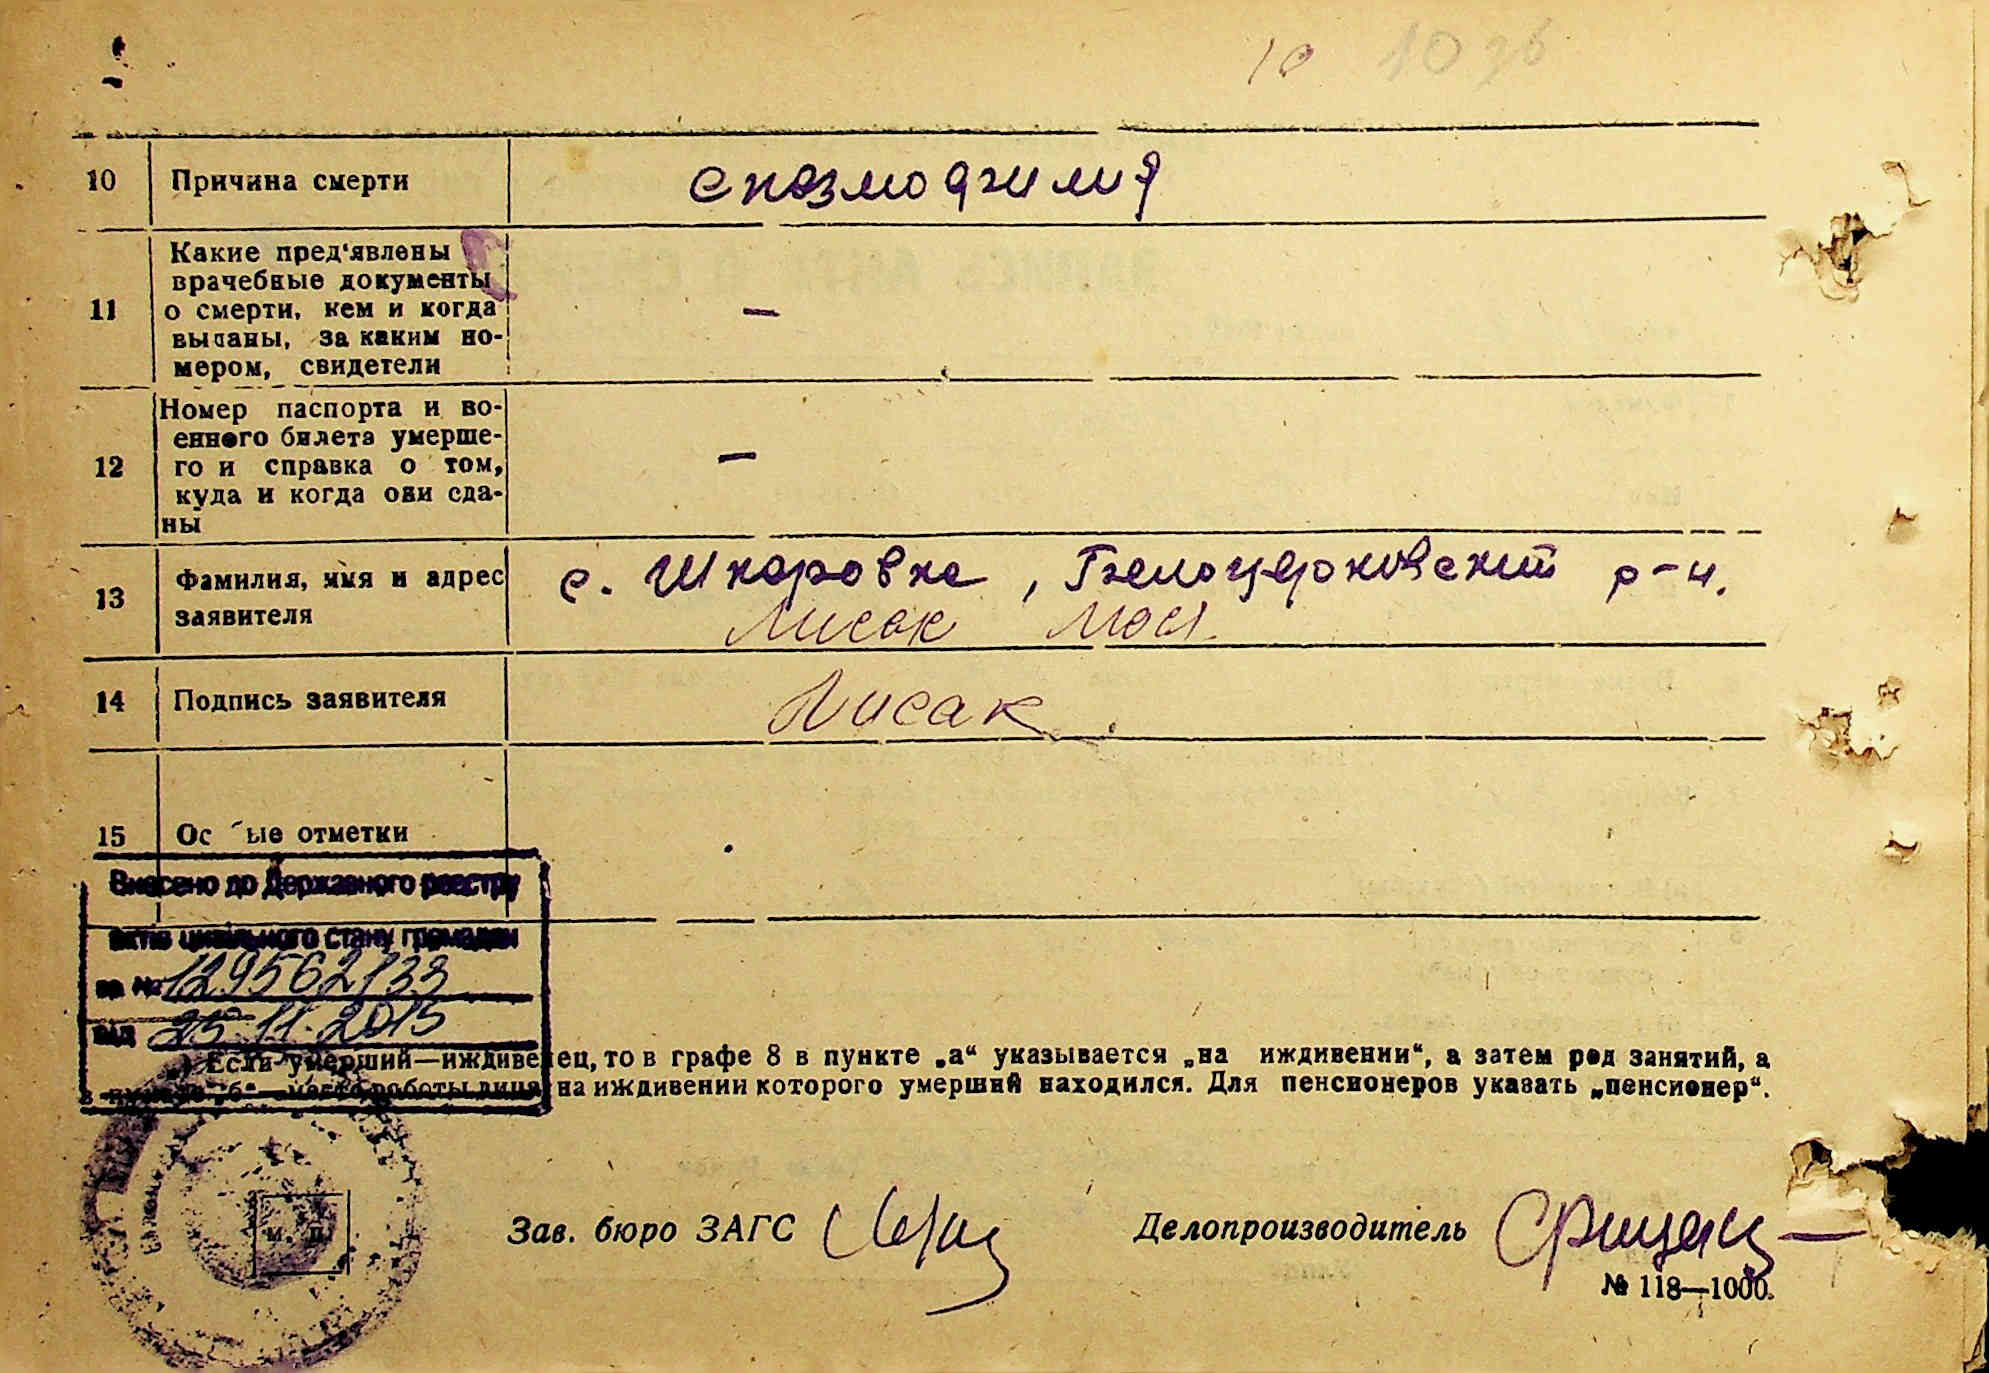 10 10 зв
10 Причина смерти спазмофилия
11 Какие пред‘явлены
врачебные документы
о смерти, кем и когда
выданы, за каким но-
мером, свидетели
–
12 Номер паспорта и во-
енного билета умерше-
го и справка о том,
куда и когда они сда-
ны
–
13 Фамилия, имя и адрес
заявителя
с. Шкаровка, Белоцерковский р-н.
Лисак
14 Подпись заявителя Лисак
15 Ос ые отметки
Внесено до Державного реєстру
актів цивільного стану громадян
за № 129562133
від 25.11.2015
) Если умерший—иждивенец, то в графе 8 в пункте „а“ указывается „на иждивении“, а затем род занятий, а
в пункте „б“—место работы лица, на иждивении которого умерший находился. Для пенсионеров указать „пенсионер“.
М. П.
Зав. бюро ЗАГС
Делопроизводитель
№ 118—1000.